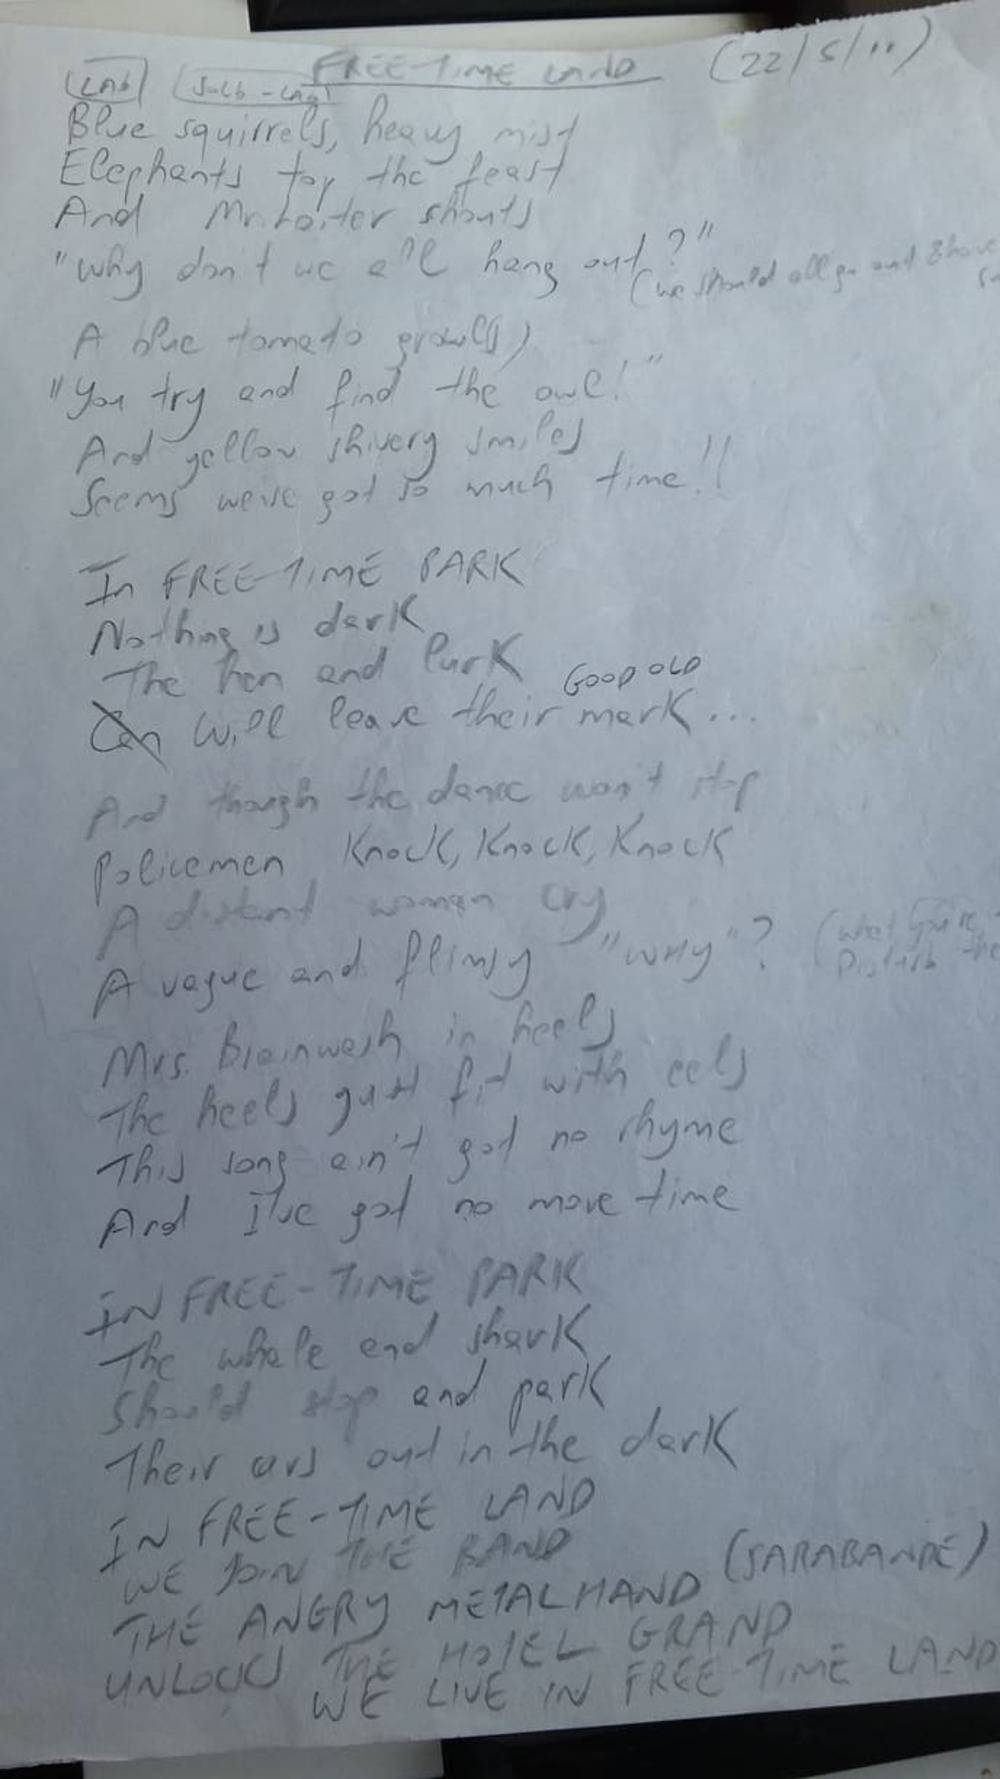 FREE-TIME LAND (22/5/11)
Blue squirrels, heavy mist
Elephants top the feast
And Mr. Loiter shouts
"Why don't we all hang out?"
(we should all go and
A blue tomato growl(s)
"You try and find the owl!"
And yellow shivery smiles
Seems we've got so much time!!
In FREE-TIME PARK
Nothing is dark
The hen and lurk
GOOD OLD
Can Will leave their mark...
And though the dance won't stop
Policemen knock, knock, knock
A distant woman cry
A vague and flimsy "WHY"?
(what you're
Disturb the
Mrs. Brainwash in heels
The heels just fit with eels
This song ain't got no rhyme
And I've got no more time
IN FREE-TIME PARK
The whale and shark
Should stop and park
Their cars out in the dark
IN FREE-TIME LAND
WE JOIN THE BAND
(SARABANDE)
THE ANGRY METAL HAND
UNLOCKS THE HOTEL GRAND
WE LIVE IN FREE TIME LAND